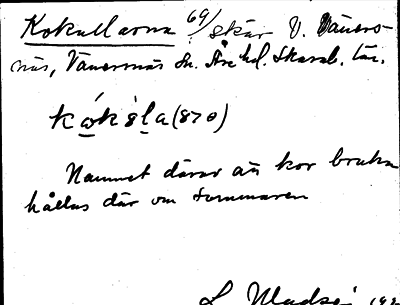 Kokullarna 69/ skär V. Väners-
näs, Vänersnäs sn. Åse hd. Skarab. län.
kó̱kòḻa (870)
Namnet därav att kor bruka
hållas där om sommaren
L.